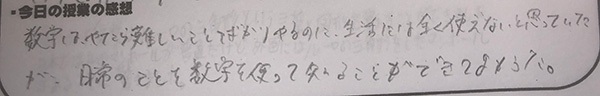 ・今日の授業の感想
数学は、やたら難しいことばかりやるのに、生活には全く使えないと思っていた
が、日常のことを数学を使って知ることができてよかった。